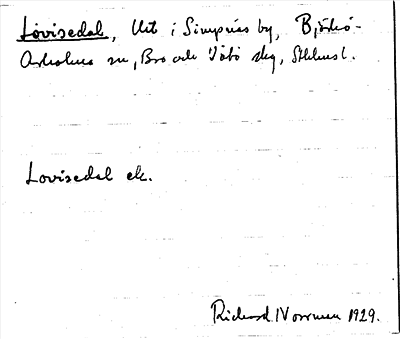 Lovisedal, Utt i Simpnäs by, Björkö-
Arholma sn, Bro och Vätö skg, Sthlms l.
Lovisedal ek.
Richard Norrman 1929.